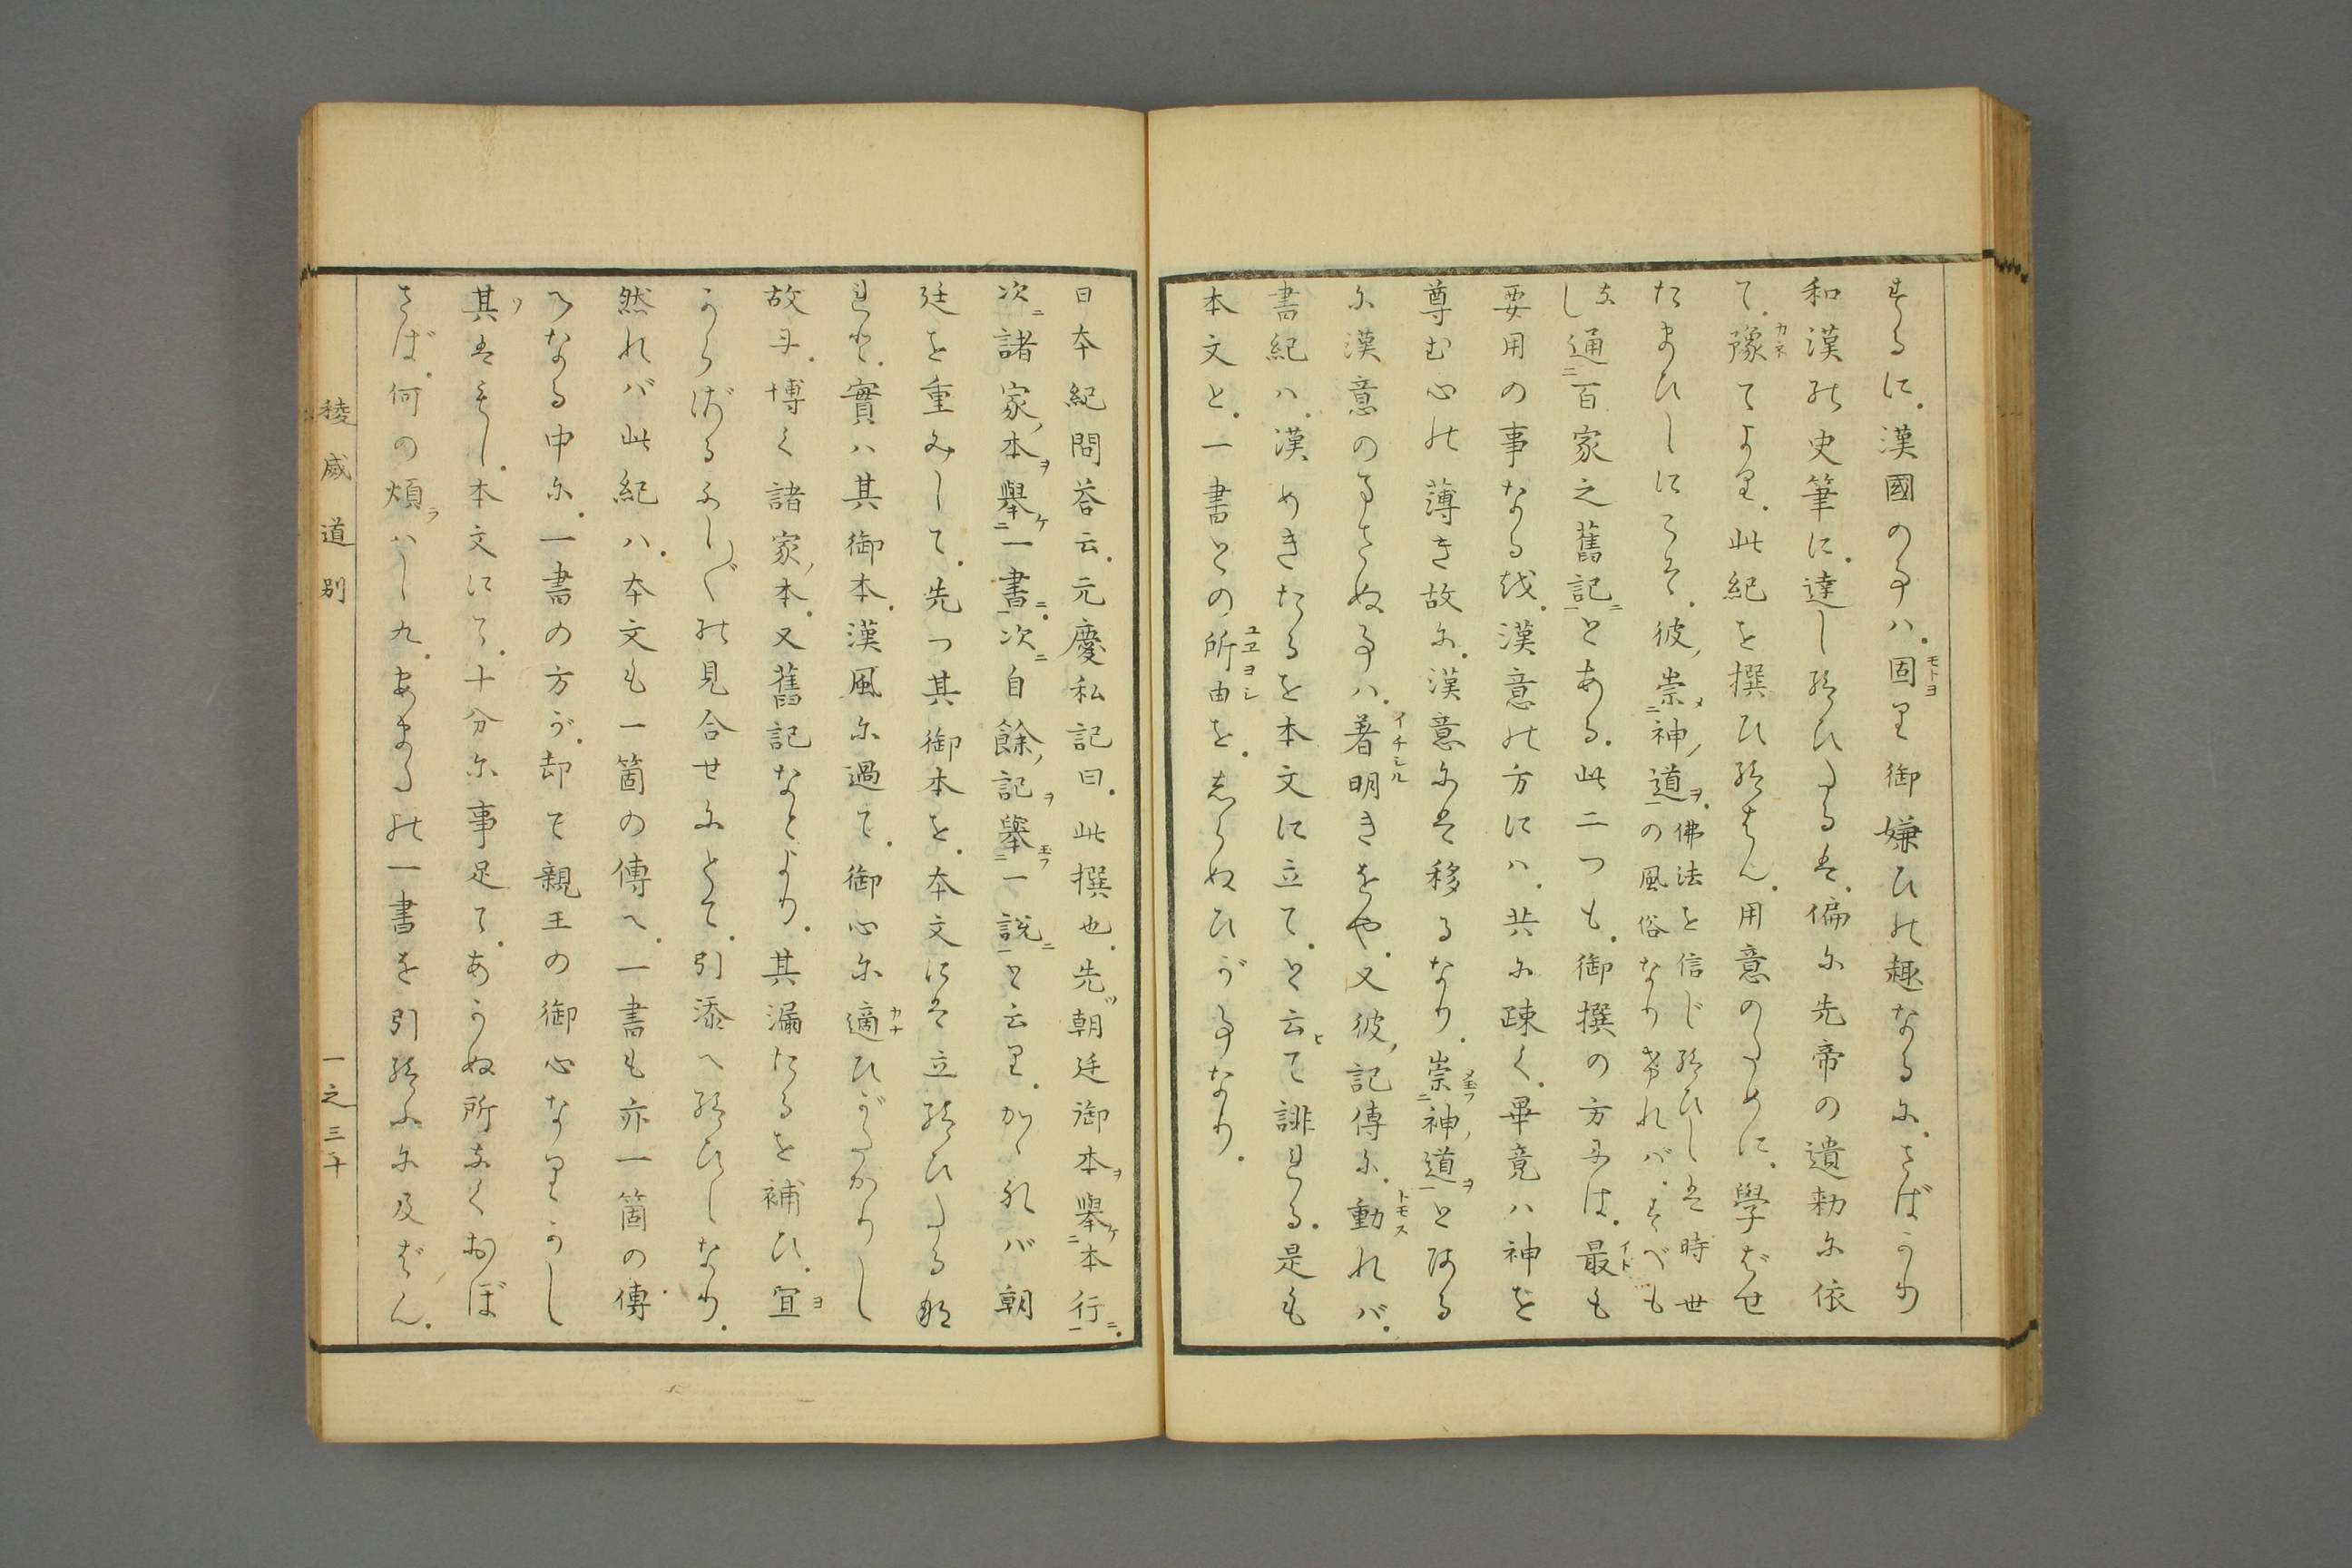 するに。漢國の事ハ。固より御嫌ひの趣なるに。さばかり
和漢の史筆に。達し給ひたるは。偏に先帝の遺勅に依
て。豫てより。此紀を撰ひ給はん。用意のために。學ばせ
たまひしにこそ。彼崇神道の風俗なりければ。すべも
佛法を信じ給ひしは時世
なし通百家之舊記とある。此二つも。御撰の方には。最も
要用の事なる故。漢意の方にハ。共に疎く。畢竟ハ神を
尊む心の薄き故に。漢意には移るなり。崇神道とある
に漢意の事さぬ事ハ。著明きをや。又彼記傳に。動れバ。
書紀ハ。漢めきたるを本文に立て。と云て誹れる。是も
本文と。一書との所由を。しらぬひが事なり。
日本紀問荅云。元慶私記曰。此撰也。先朝廷御本擧本行。
次諸家本擧一書。次自餘記擧一說と云り。かゝれバ朝
廷を重みして。先つ其御本を。本文には立給ひたる
れど。實ハ其御本。漢風に過て。御心に適ひがたかりし
故に。博く諸家本。又舊記なとより。其漏たるを補ひ。宜
からざるふし〴〵の見合せにとて。引添へ給ひしなり。
然れバ此紀ハ。本文も一箇の傳へ。一書も亦一箇の傳
へなる中に。一書の方が。却て親王の御心なりかし
其はもし。本文にて。十分に事足て。あかぬ所なくおぼ
さば。何の煩ハし九。あまたの一書を引給ふに及ばん。
稜威道別
一之三十